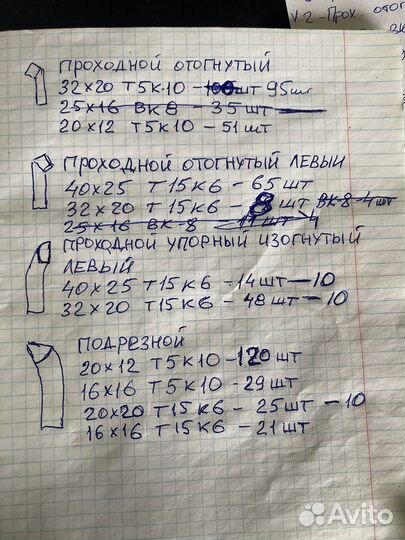 V 2 - Прох. отог
ПРОХОДНОЙ ОТОГНУТЫЙ
32×20 Т5К10 - 100шт 95шт
25×16 ВК8 - 35шт
20×12 Т5К10 - 51шт
ПРОХОДНОЙ ОТОГНУТЫЙ ЛЕВЫЙ
40×25 Т15К6 - 65шт
32×20 Т15К6 - 8 шт ВК-8-4шт
25×16 ВК-8 - шт
ПРОХОДНОЙ УПОРНЫЙ ИЗОГНУТЫЙ
ЛЕВЫЙ
40×25 Т15К6 - 14шт - 10
32×20 Т15К6 - 48шт - 10
ПОДРЕЗНОЙ
20×12 Т5К10 - 120 шт
16×16 Т5К10 - 29шт
20×20 Т15К6 - 25шт - 10
16×16 Т15К6 - 21шт
Avito